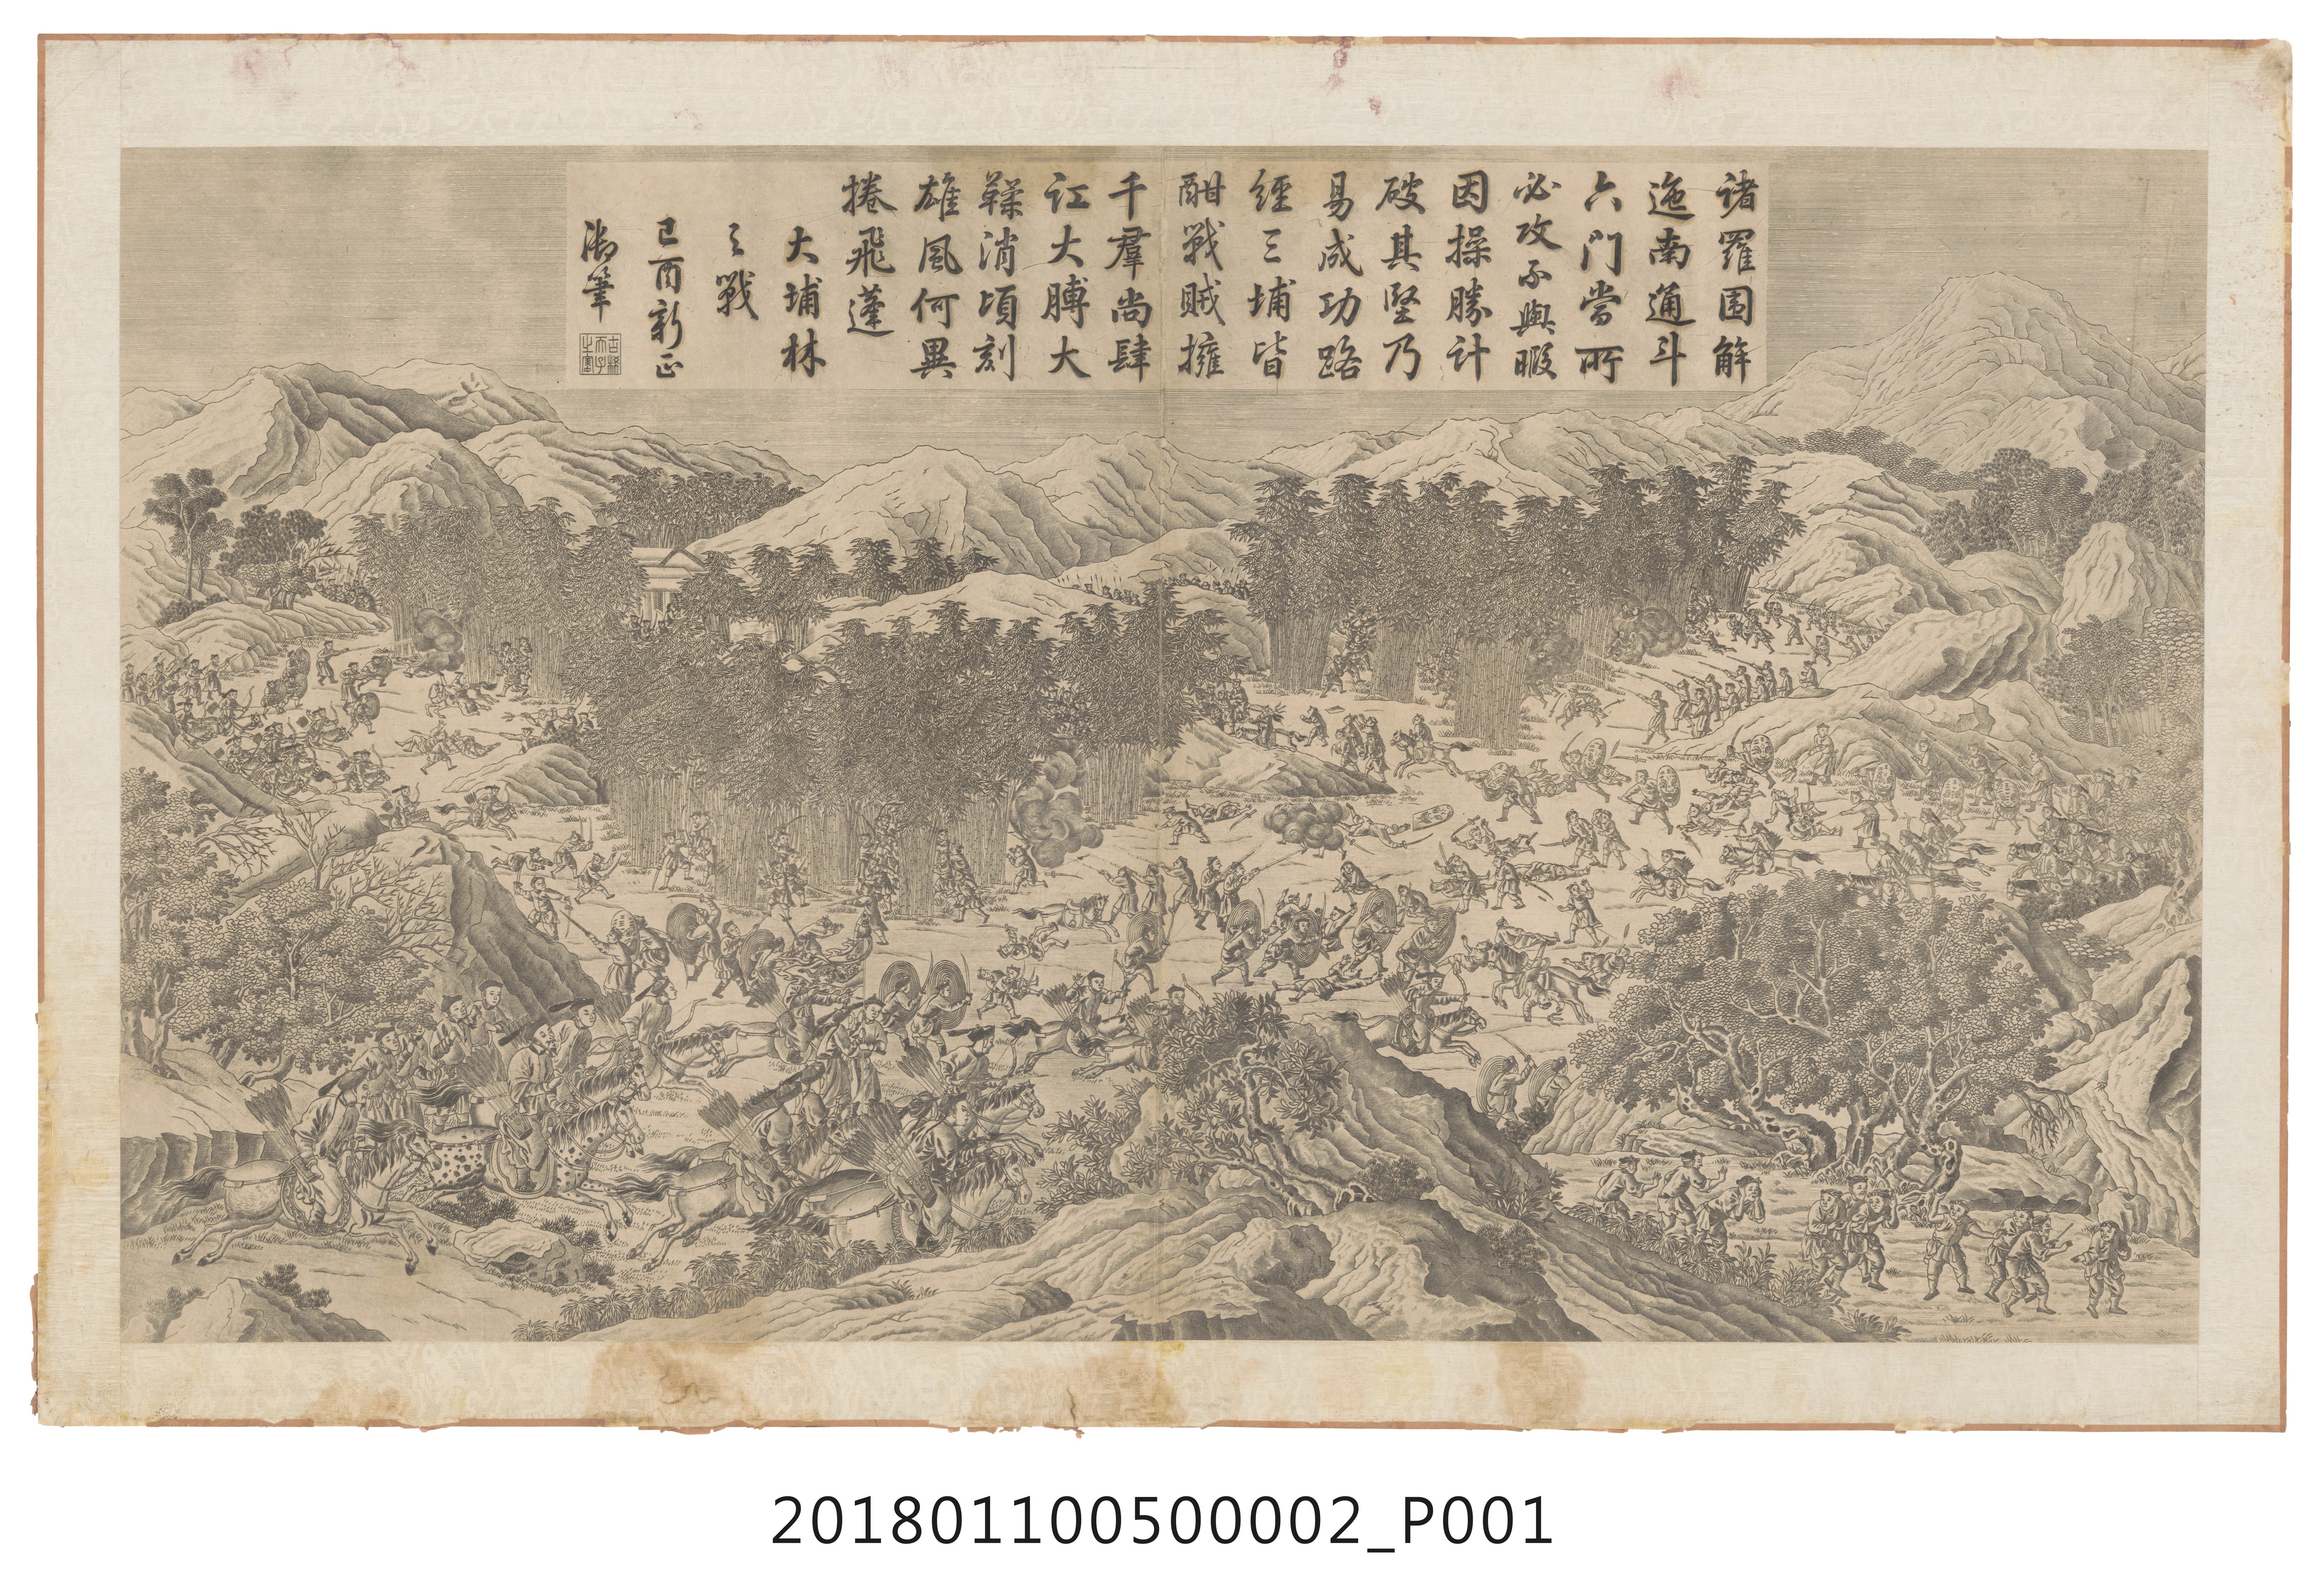 諸羅围解
迤南通斗
六門當所
必攻不與暇
因操勝計
破其堅乃
易成功路
經三埔皆
酣戰賊擁
千羣尚肆
訌大膊大
鞣消頃刻
雄風何異
捲飛蓬
大埔林
之戰
己酉新正
御筆
古稀
天子
之寶
201801100500002_P001